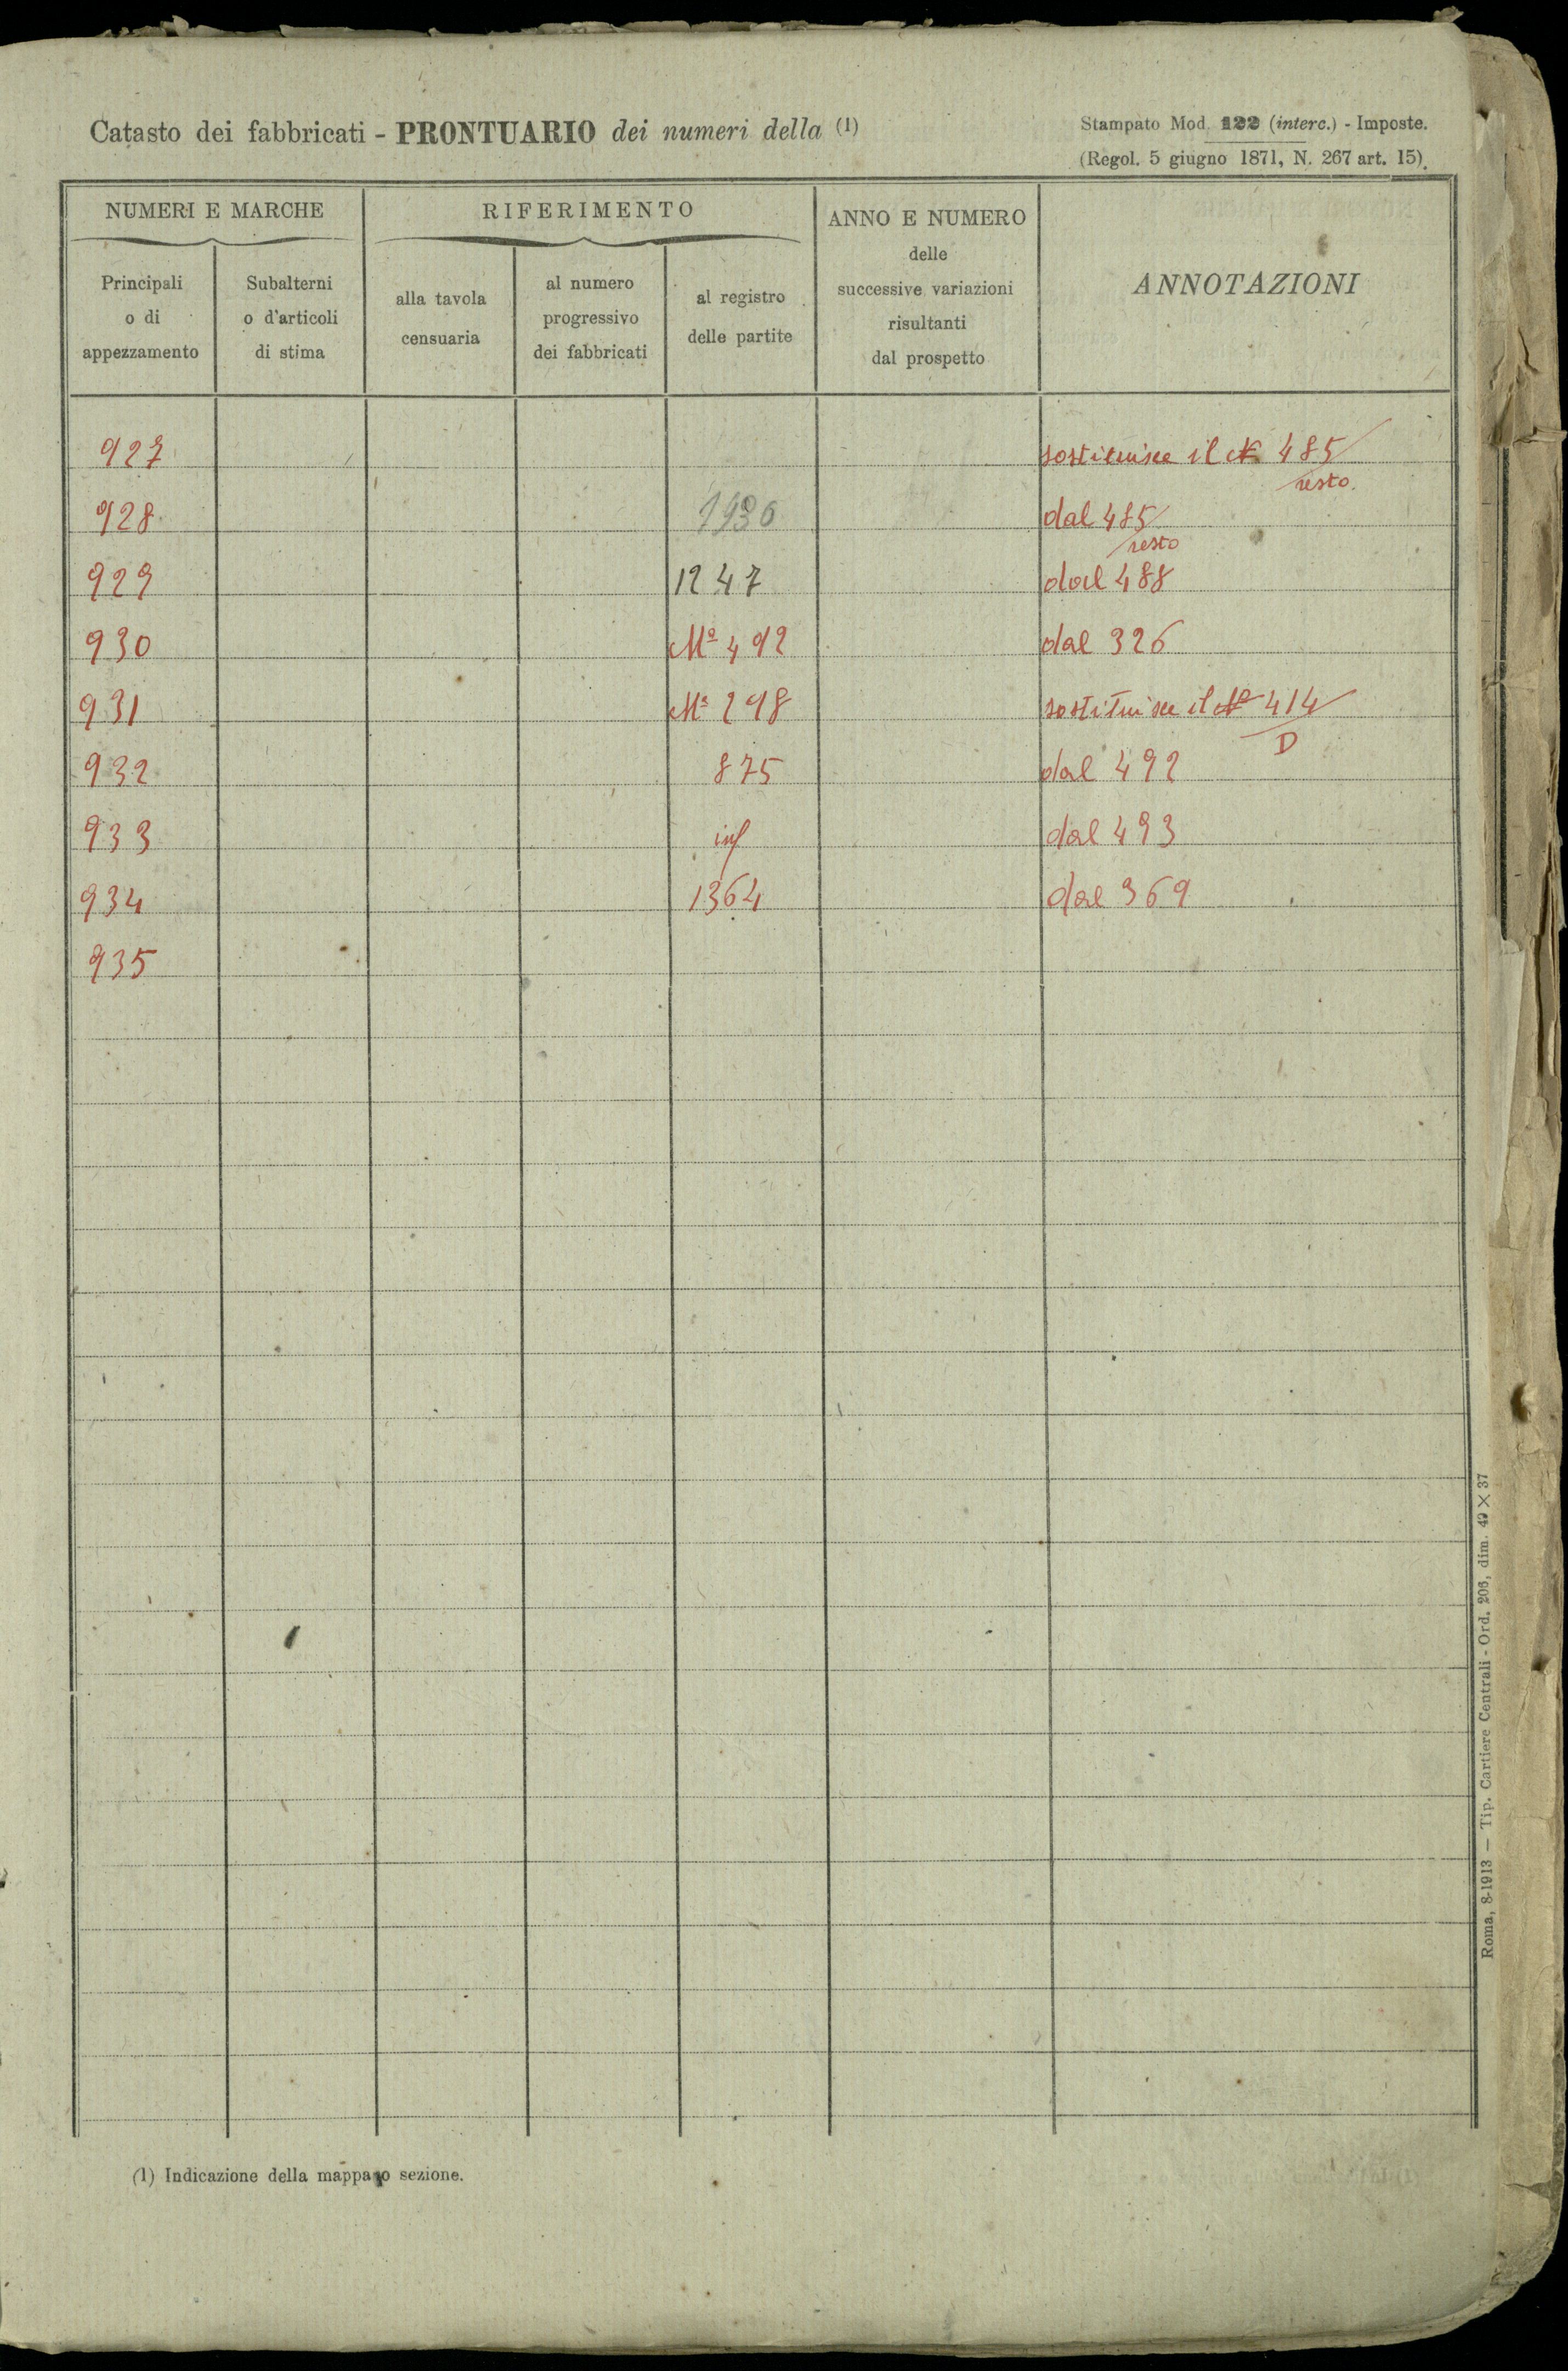 Catasto dei fabbricati - PRONTUARIO dei numeri della (1)
Stampato Mod. 122 (interc.) - Imposte.
(Regol. 5 giugno 1871, N. 267 art. 15)
NUMERI E MARCHE
RIFERIMENTO
ANNO E NUMERO
delle
successive variazioni
risultanti
dal prospetto
ANNOTAZIONI
Principali
o di
appezzamento
Subalterni
o d'articoli
di stima
alla tavola
censuaria
al numero
progressivo
dei fabbricati
al registro
delle partite
927 sostituisce il N 485/resto
928 dal 485/resto
929 1247 dal 488
930 Mª 492 dal 326
931 Mª 298 sostituisce il Nº 414/D
932 875 dal 492
933 inf dal 493
934 1364 dal 369
935
(1) Indicazione della mappa o sezione.
Roma, 8-1913 — Tip. Cartiere Centrali - Ord. 206, dim. 49×37